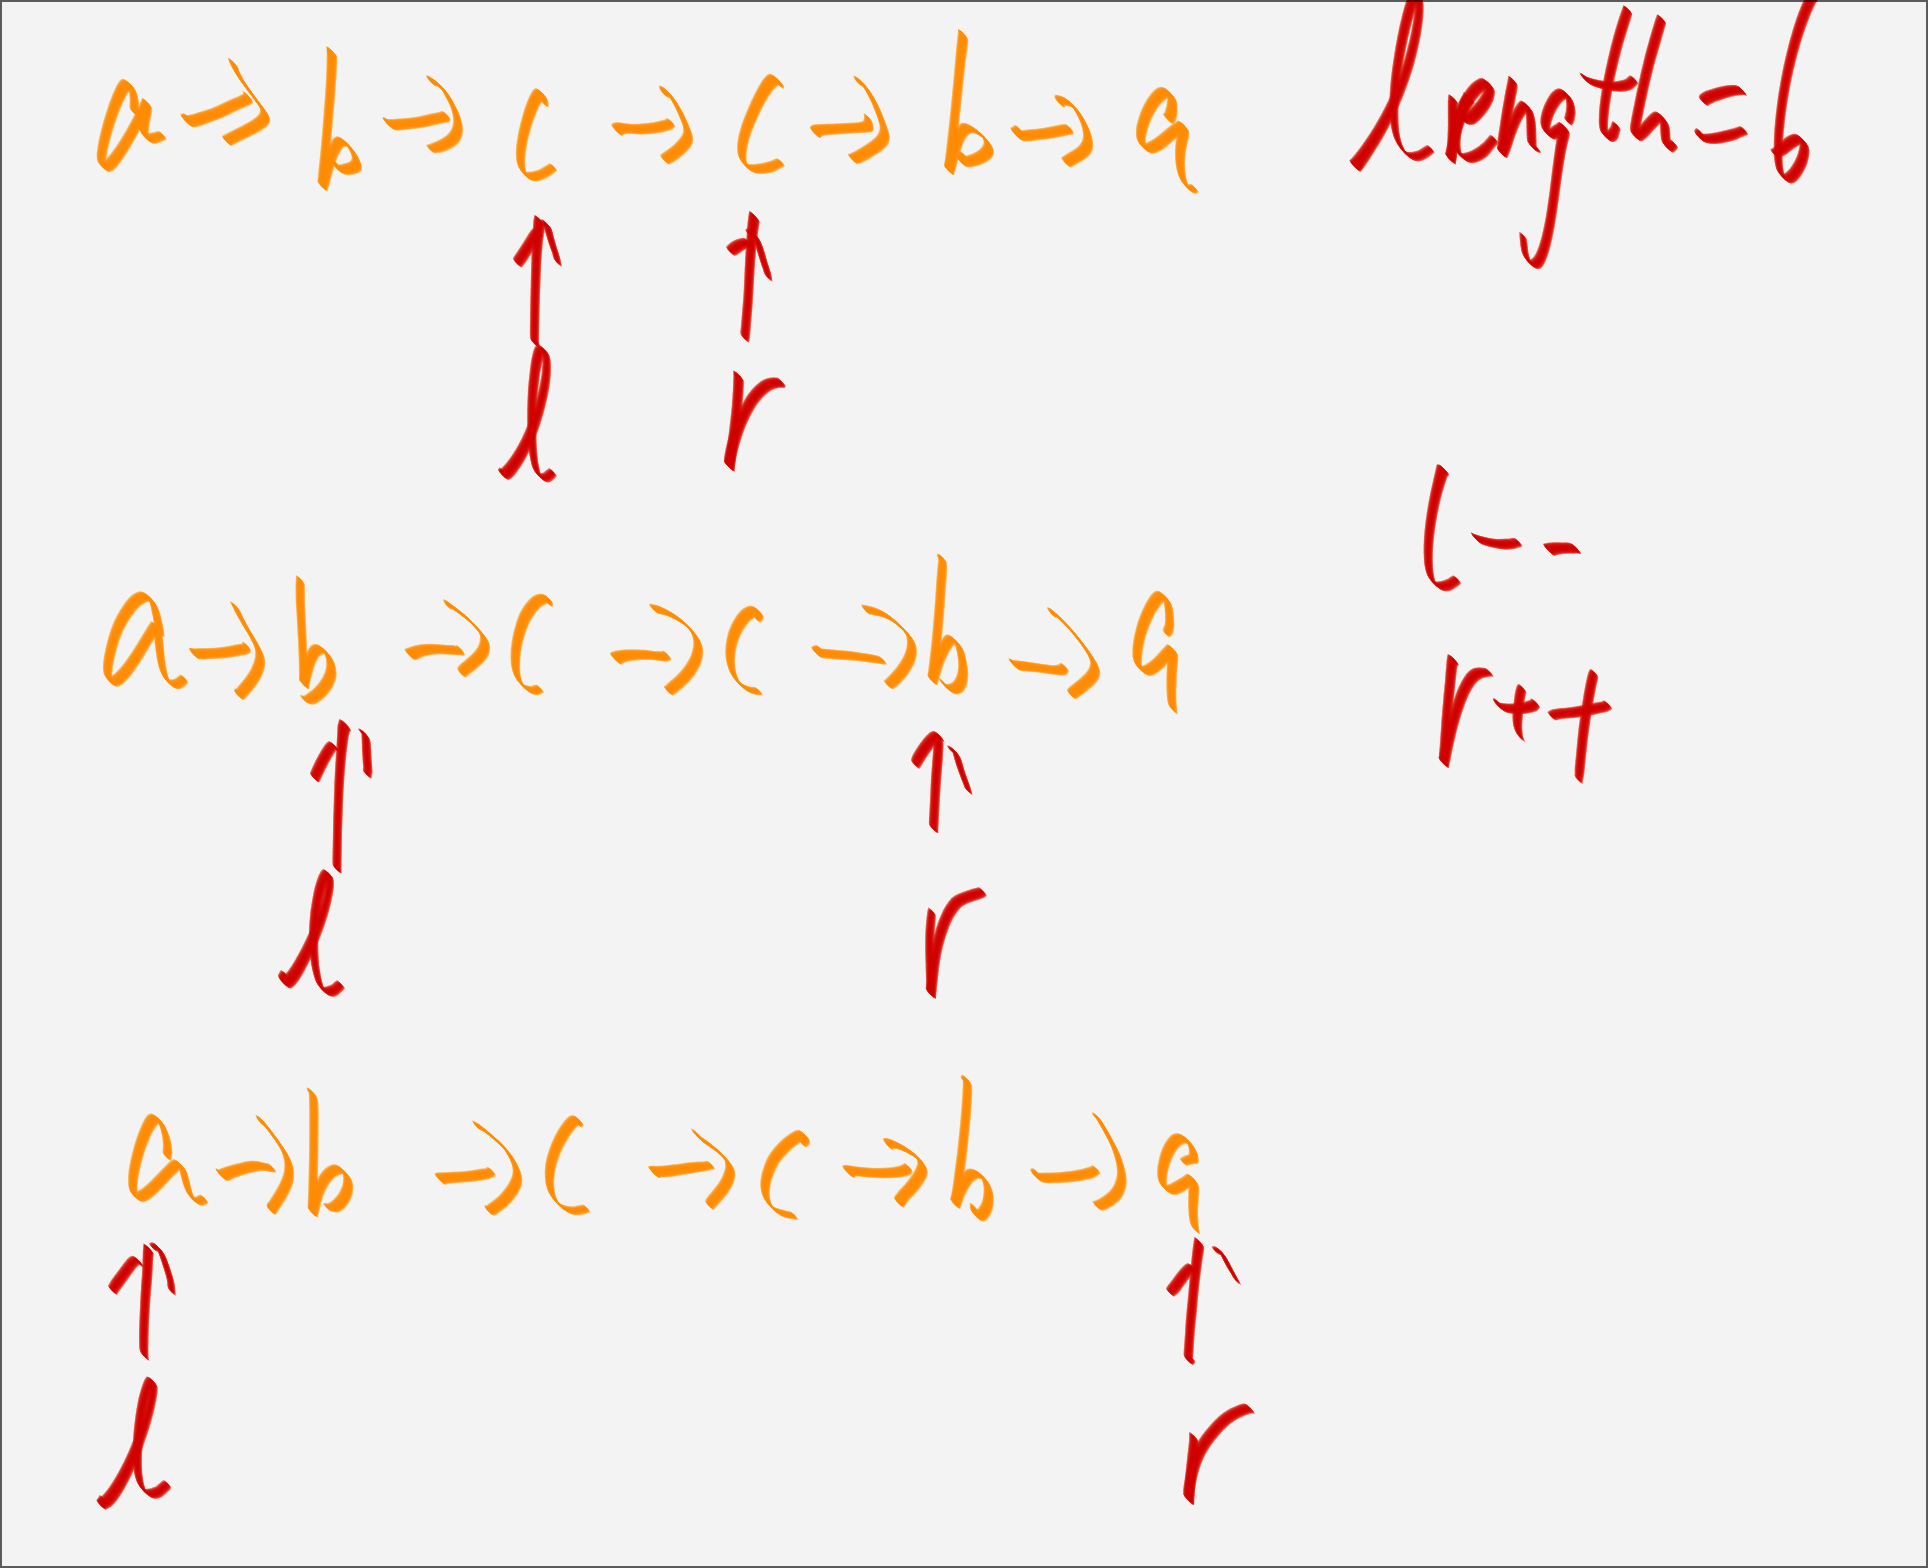 a→b→c→c→b→a length=6
↑ ↑
l r
l--
a→b→c→c→b→a
r++
↑ ↑
l r
a→b→c→c→b→a
↑ ↑
l r